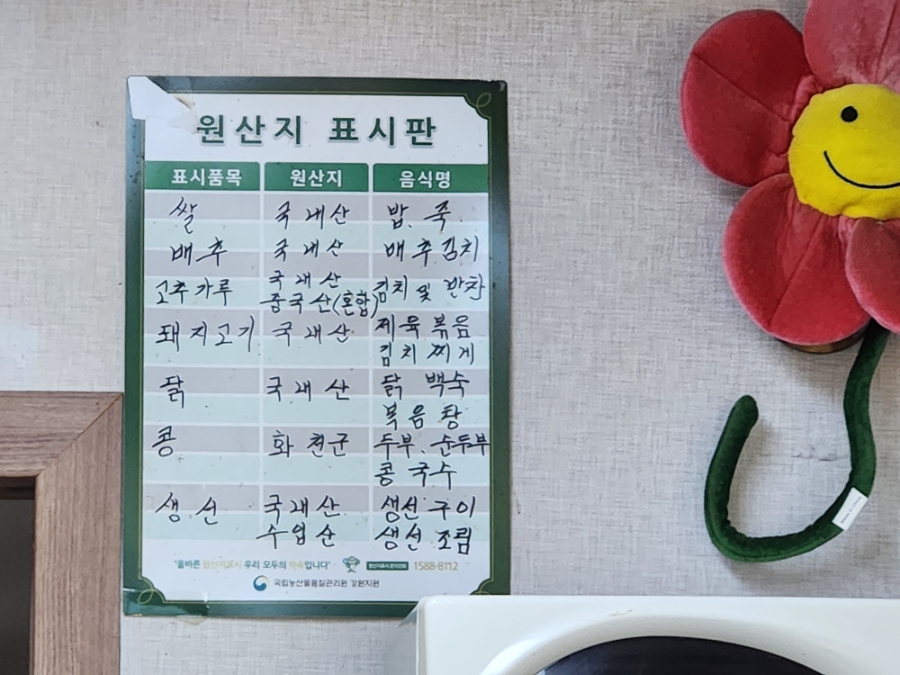 원산지 표시판
표시품목 원산지 음식명
쌀 국내산 밥. 죽
배추 국내산 배추김치
고추가루 국내산 중국산(혼합) 김치 및 반찬
돼지고기 국내산 제육볶음
김치찌게
닭 국내산 닭 백숙
볶음탕
콩 화천군 두부. 순두부
콩국수
생선 국내산 생선구이
수입산 생선조림
"올바른 원산지표시 우리 모두의 약속입니다" 1588-8112
국립농산물품질관리원 강원지원